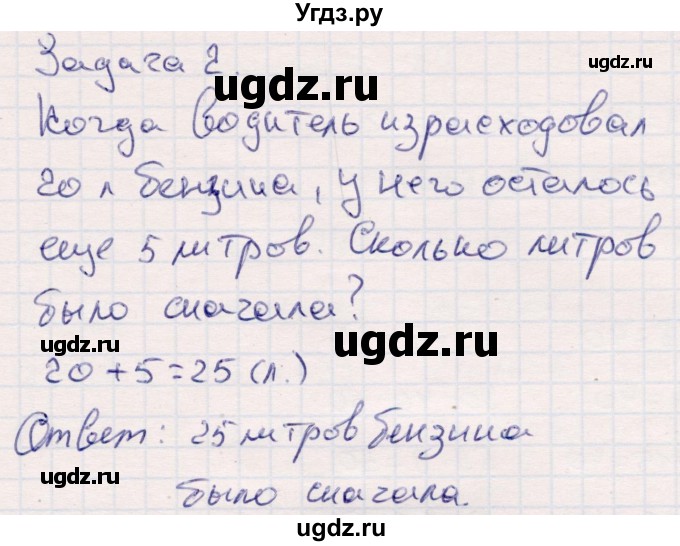 Угдз.ру
Задача 2
ugdz.ru
Когда водитель израсходовал
ugdz.ru
20 л бензина, у него осталось
еще 5 литров. Сколько литров
ugdz.ru
было сначала?
ugdz.ru
ugdz.ru
20 + 5 = 25 (л.)
Ответ: 25 литров бензина
ugdz.ru
ugdz.ru
было сначала.
ugdz.ru